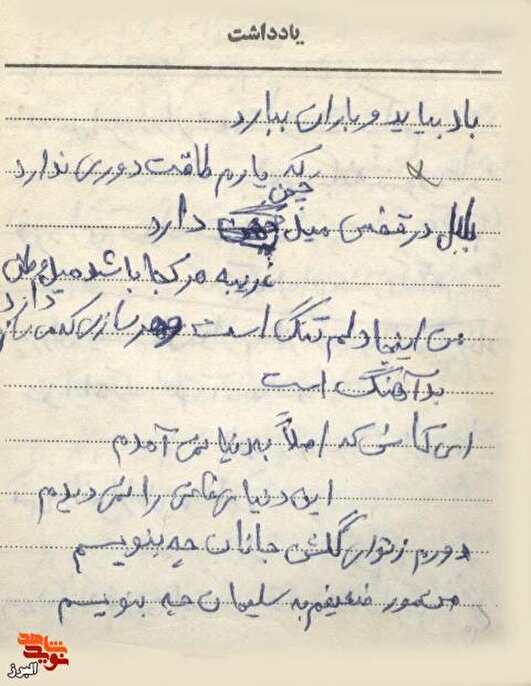 یادداشت
باد بیاید و باران ببارد
که یارم طاقت دوری ندارد
چمن
بلبل در قفس میل دارد
غریبه هر کجا باشد میل وطن
دارد
من اینجا دلم تنگ است هر سازی که می‌زنم
بد آهنگ است
ای کاش که اصلاً به دنیا نمی آمدم
این دنیای فانی را نمی دیدم
دورم ز تو ای گلشن جانان چه بنویسم
من مور ضعیفم به سلیمان چه بنویسم
نوید شاهد
البرز